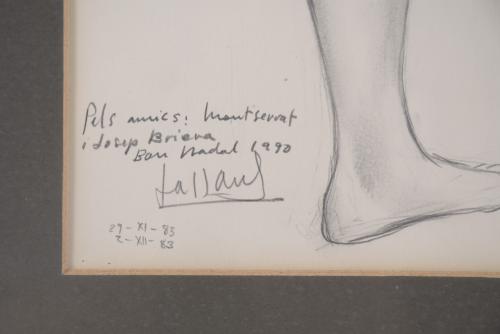 Pels amics: Montserrat
i Josep Briera
Bon Nadal 1990
29-XI-83
2-XII-83